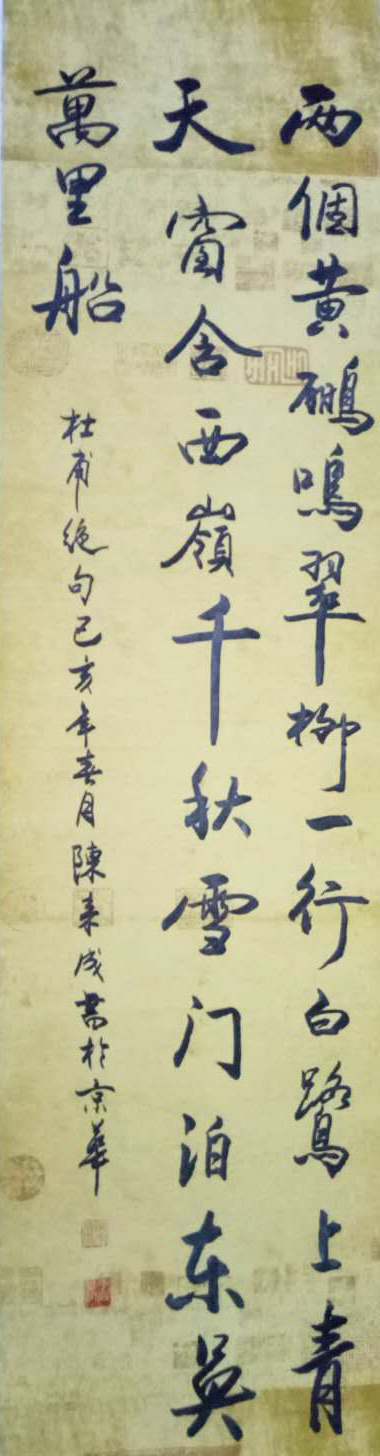 两個黄鸝鳴翠柳一行白鷺上青
天窗含西嶺千秋雪门泊东吳
萬里船
杜甫绝句己亥年春月陳来成書於京華